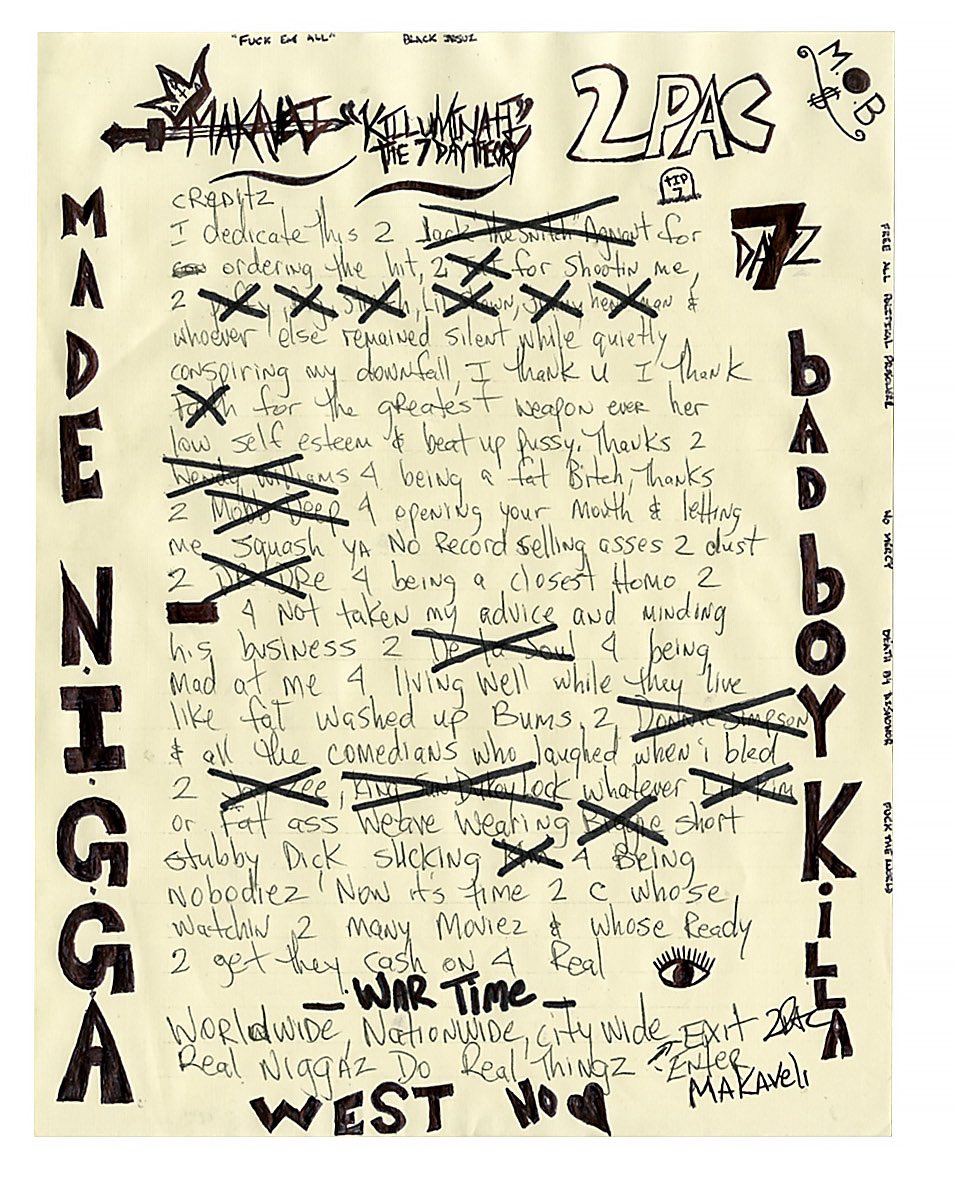 "FUCK EM ALL"
BLACK JESUZ
M.O.B
MAKAVELI "KILLUMINATI"
THE 7 DAY THEORY
2PAC
RIP
7
7
DAYZ
CREDITZ
I dedicate this 2 Jack the Snitch" Agnant for
ordering the hit, 2 for shootin me,
2 Puffy, Stretch, Lil Shawn, Jimmy henchman &
whoever else remained silent while quietly
conspiring my downfall, I thank u I thank
Faith for the greatest weapon ever her
low self esteem & beat up pussy. Thanks 2
Wendy Williams 4 being a fat Bitch, Thanks
2 Mobb Deep 4 opening your mouth & letting
me squash ya No Record selling asses 2 dust
2 DR DRE 4 being a closest Homo 2
4 Not taken my advice and minding
his business 2 De La Soul 4 being
mad at me 4 living well while they live
like fat washed up Bums, 2 Donnie Simpson
& all the comedians who laughed when i bled
2 Jay Zee, King Sun Dukey Lock whatever Lil Kim
or Fat ass Weave Wearing Biggie short
stubby Dick sucking Kim 4 Being
nobodiez Now it's time 2 c whose
watchin 2 many Moviez & whose Ready
2 get they cash on 4 Real
- WAR TIME -
WORLDWIDE, NATIONWIDE, citywide Exit 2PAC
Real Niggaz Do Real Thingz Enter
MAKAVELI
WEST NO
MADE N.I.G.G.A
bAD boY KiLLA
FREE ALL POLITICAL PRISONERZ
NO MERCY
DEATH B4 DISHONOR
FUCK THE WORLD